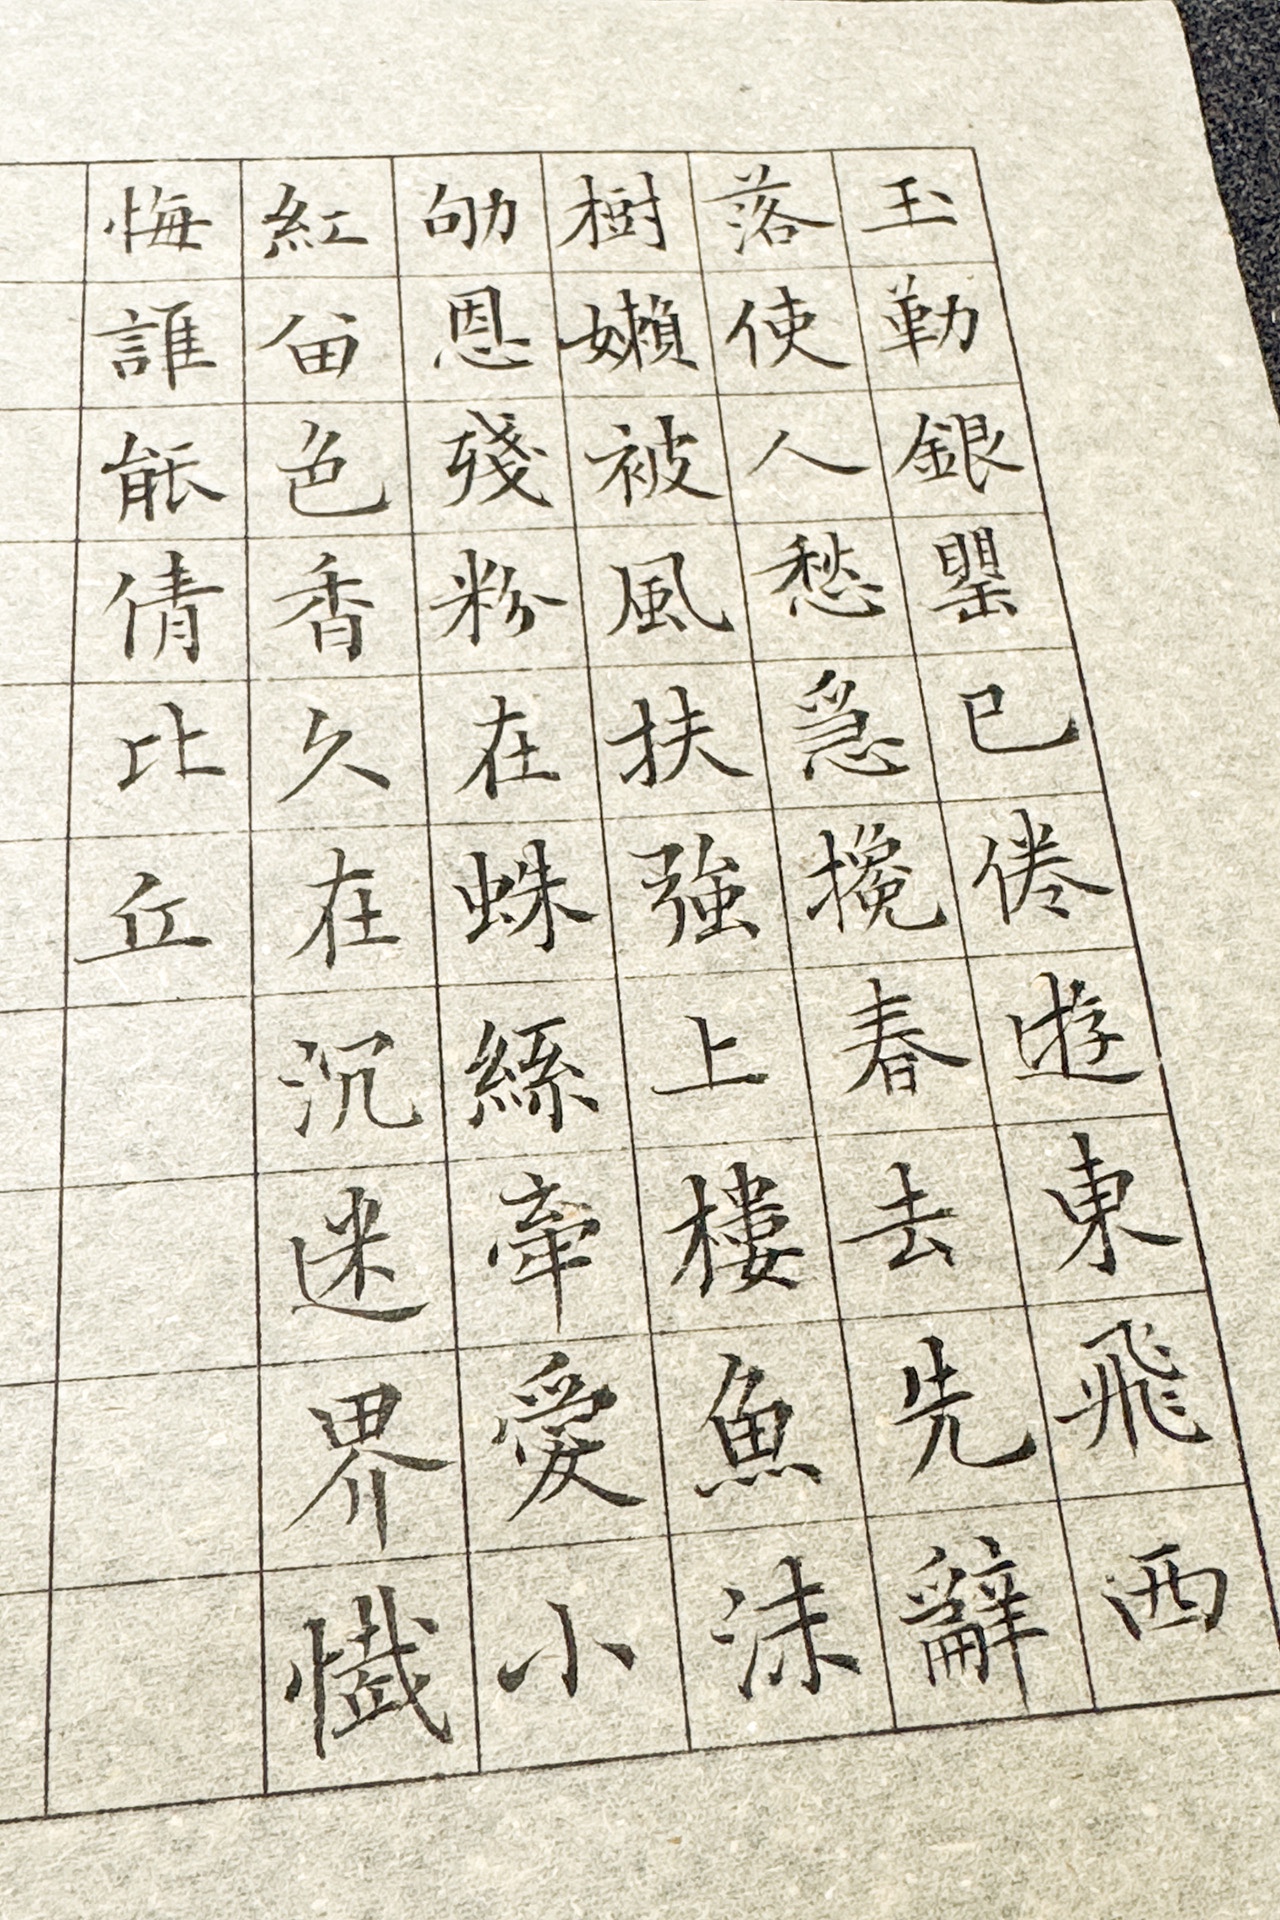 玉勒銀罌已倦遊東飛西
落使人愁急攙春去先辭
樹嬾被風扶強上樓魚沫
劬恩殘粉在蛛絲牽愛小
紅留色香久在沉迷界懺
悔誰能倩比丘